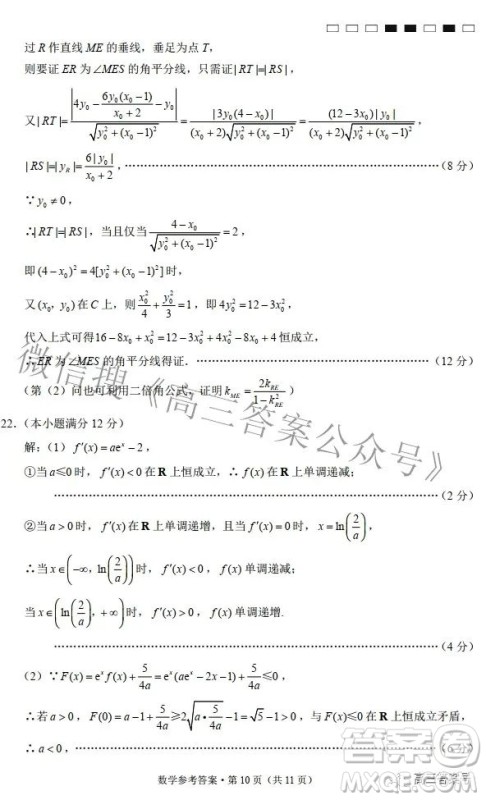 过 R 作直线 ME 的垂线，垂足为点 T，
则要证 ER 为∠MES 的角平分线，只需证|RT|=|RS|，
又|RT|=\frac{\left|4y_0-\frac{6y_0(x_0-1)}{x_0+2}-y_0\right|}{\sqrt{y_0^2+(x_0-1)^2}}=\frac{|3y_0(4-x_0)|}{(x_0+2)\sqrt{y_0^2+(x_0-1)^2}}=\frac{(12-3x_0)|y_0|}{(x_0+2)\sqrt{y_0^2+(x_0-1)^2}}，
|RS|=|y_R|=\frac{6|y_0|}{x_0+2}，……（8 分）
∵y_0≠0，
∴|RT|=|RS|，当且仅当\frac{4-x_0}{\sqrt{y_0^2+(x_0-1)^2}}=2，
即(4-x_0)^2=4[y_0^2+(x_0-1)^2]时，
又(x_0，y_0)在 C 上，则\frac{x_0^2}{4}+\frac{y_0^2}{3}=1，即4y_0^2=12-3x_0^2，
代入上式可得16-8x_0+x_0^2=12-3x_0^2+4x_0^2-8x_0+4恒成立，
∴ER 为∠MES 的角平分线得证．……（12 分）
（第（2）问也可利用二倍角公式，证明k_{ME}=\frac{2k_{RE}}{1-k_{RE}^2}）
22.（本小题满分 12 分）
解：（1）f′(x)=ae^x-2，
①当a≤0时，f′(x)<0在 R 上恒成立，∴f(x)在 R 上单调递减；
……（2 分）
②当a>0时，f′(x)在 R 上单调递增，且当f′(x)=0时，x=ln(\frac{2}{a})，
∴当x∈(-∞，ln(\frac{2}{a}))时，f′(x)<0，f(x)单调递减；
当x∈(ln(\frac{2}{a})，+∞)时，f′(x)>0，f(x)单调递增.
……（4 分）
（2）∵F(x)=e^xf(x)+\frac{5}{4a}=e^x(ae^x-2x-1)+\frac{5}{4a}≤0，
∴若a>0，F(0)=a-1+\frac{5}{4a}≥2\sqrt{a•\frac{5}{4a}}-1=\sqrt{5}-1>0，与F(x)≤0在 R 上恒成立矛盾，
∴a<0，……（6 分）
数学参考答案·第 10 页（共 11 页）
微信搜《高三答案公众号》